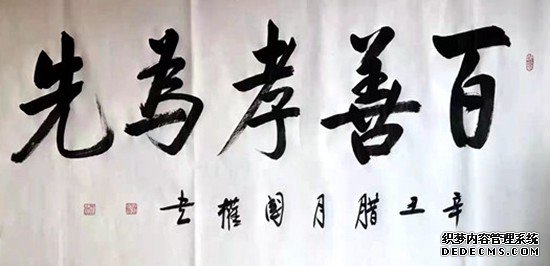 百善孝為先
辛丑腊月国權书
织梦内容管理系统
DEDECMS.COM